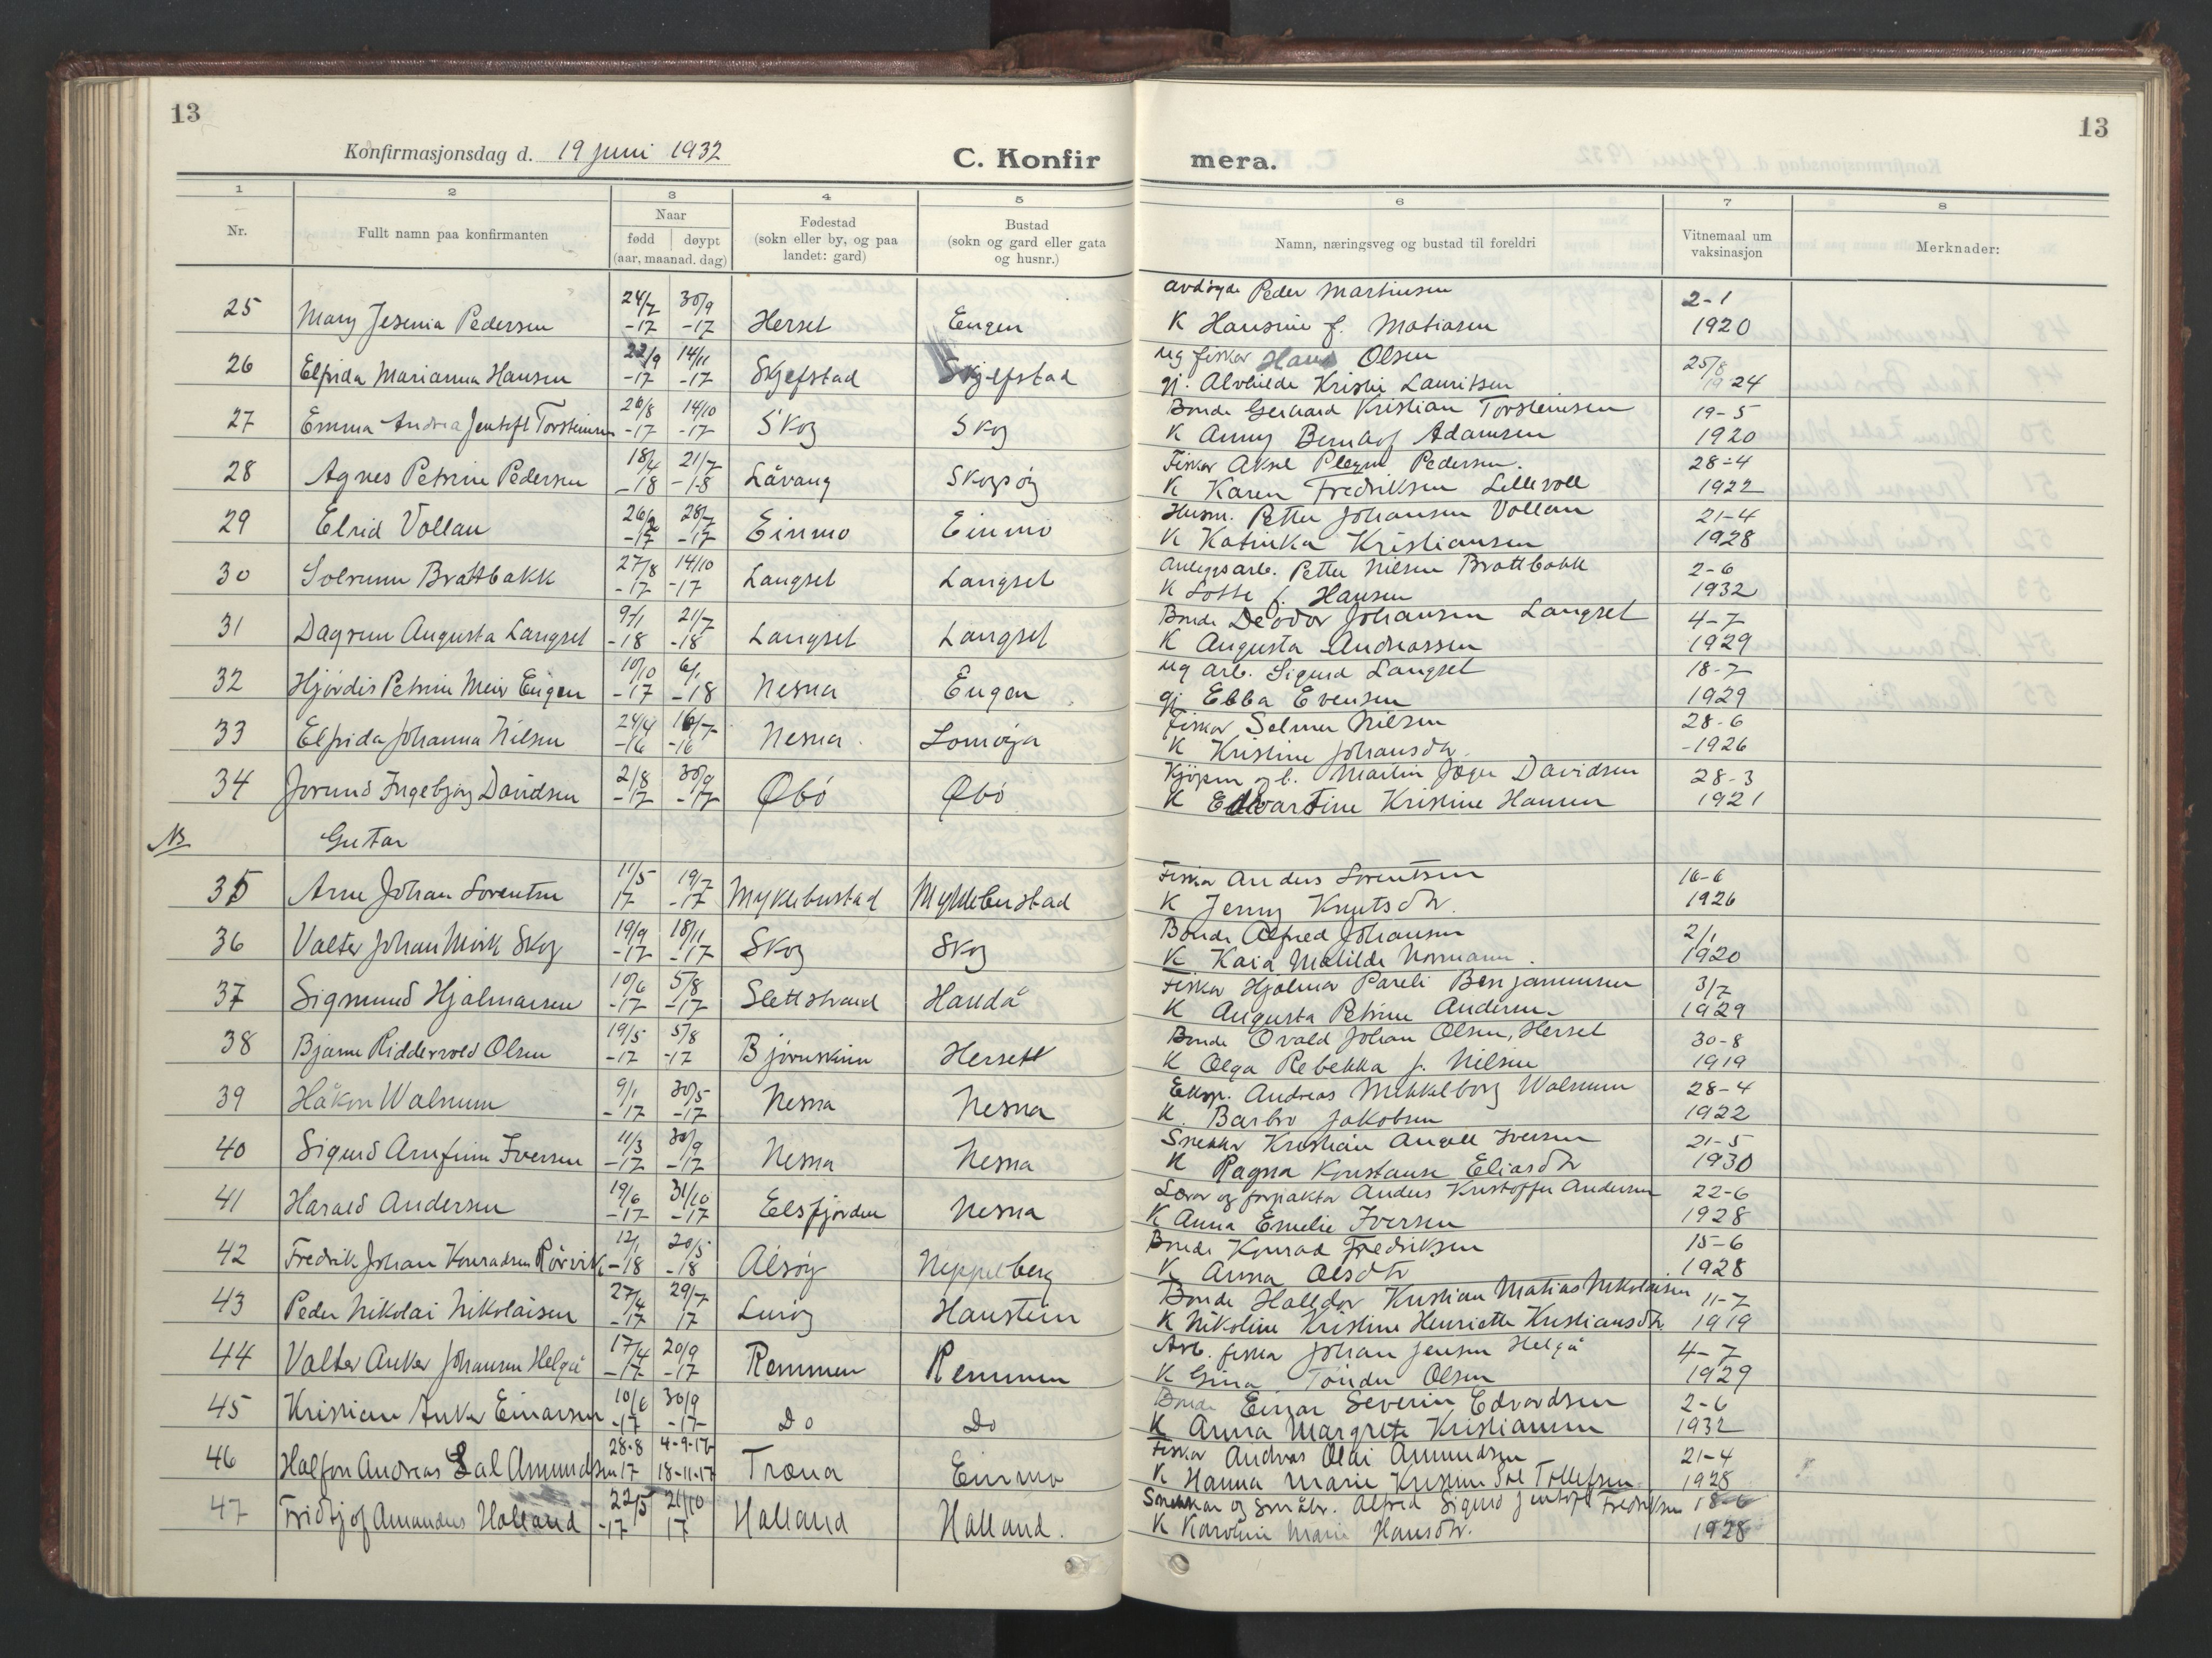 13
Konfirmasjonsdag d. 19 juni 1932
C. Konfir
mera.
13
1 2 3 4 5 6 7 8
Nr.
Fullt namn paa konfirmanten
Naar
fødd døypt
(aar, maanad. dag)
Fødestad
(sokn eller by, og paa
landet: gard)
Bustad
(sokn og gard eller gata
og husnr.)
Namn, næringsveg og bustad til foreldri
Vitnemaal um
vaksinasjon
Merknader:
25 Mary Jesenia Pedersen 24/7 -17 30/9 -17 Herset Engen avdøyde Peder Martinsen 2-1
K Hansine f. Matiasen 1920
26 Elfrida Marianna Hansen 22/9 -17 14/11 -17 Skjefstad Skjelfstad ug fiskar Hans Olsen 25/8
gj. Alvhilde Kristine Lauritsen 1924
27 Emma Andrea Jentoft Torsteinsen 26/8 -17 14/10 -17 Skog Skog Bonde Gerhard Kristian Torsteinsen 19-5
K Anny Adamsen 1920
28 Agnes Petrine Pedersen 18/4 -18 21/7 -18 Låvang Skogsøy Fiskar Aksel Pedersen. 28-4
K Karen Fredriksen Lillevoll 1922
29 Elrid Vollan -17 28/7 -17 Einmo Einmo Husm. Petter Johansen Vollan 21-4
K Katinka Kristiansen 1928
30 Solrunn Brattbakk 27/8 -17 14/10 -17 Langset Langset Anleggsarb. Petter Nilsen Brattbakk 2-6
K Lotte f. Hansen 1932
31 Dagrun Augusta Langset 9/1 -18 21/7 -18 Langset Langset Bonde Deodor Johansen Langset 4-7
K Augusta Andreassen 1929
32 Hjørdis Petrine Meier Engen 10/10 -17 6/1 -18 Nesna Engen ug arb. Sigurd Langset 18-7
gj Ebba Evensen 1929
33 Elfrida Johanna Nilsen 24/4 -16 16/7 -16 Nesna Somøya Fiskar Selmer Nilsen 28-6
K Kristine Johansdtr. -1926
34 Jorund Ingebjørg Davidsen 2/8 -17 30/9 -17 Øbø Øbø Kjøpm og b. Martin Jøger Davidsen 28-3
K Edvartine Kristine Hansen 1921
NB Gutar
35 Arne Johan Lorentsen 11/5 17 19/7 -17 Myklebustad Myklebustad Fiskar Anders Lorentsen 16-6
K Jenny Knutsdtr. 1926
36 Valter Johan Mørk Skog 19/9 -17 18/11 -17 Skog Skog Bonde Alfred Johansen 2/1
K Kaia Matilde Normann. 1920
37 Sigmund Hjalmarsen 10/6 -17 5/8 -17 Slettstrand Handå Fiskar Hjalmar Pareli Benjaminsen 3/7
K Augusta Petrine Andersen 1929
38 Bjarne Riddervold Olsen 19/5 -17 5/8 -17 Bjørnskinn Hersett Bonde Ovald Johan Olsen, Herset 30-8
K Olga Rebekka f. Nilsen 1919
39 Håkon Walnum 9/1 -17 30/5 -17 Nesna Nesna Eksp. Andreas Mekkelborg Walnum 28-4
K. Barbro Jakobsen 1922
40 Sigurd Arnfinn Iversen 11/3 -17 30/9 -17 Nesna Nesna Snekkar Kristian Angell Iversen 21-5
K Ragna Konstanse Eliasdtr 1930
41 Harald Andersen 19/6 -17 31/10 -17 Elsfjorden Nesna Lærar og forpaktar Anders Kristoffer Andersen 22-6
K Anna Emelie Iversen 1928
42 Fredrik Johan Konradsen Rørvik 12/1 -18 20/5 -18 Alsøy Neppelberg Bonde Konrad Fredriksen 15-6
K Anna Olsdtr 1928
43 Peder Nikolai Nikolaisen 27/4 -17 29/7 17 Lurøy Haustein Bonde Halldor Kristian Matias Nikolaisen 11-7
K Nikoline Kristine Henriette Kristiansdtr. 1919
44 Valter Anker Johansen Helgå 17/4 -17 20/9 -17 Remmen Remmen Arb. fiskar Johan Jensen Helgå 4-7
K Gina Tonder Olsen 1929
45 Kristian Anker Einarsen 10/6 -17 30/9 -17 Do Do Bonde Einar Severin Edvardsen 2-6
K Anna Margrete Kristiansen 1932
46 Halfon Andreas Sal Amundsen 28-8 17 4-9-17 18-11-17 Træna Einmo Fiskar Andreas Olai Amundsen 21-4
K Hanna Marie Kristine Sal Tollefsen. 1928
47 Fridtjof Amandus Halland 22/5 -17 21/10 17 Halland Halland. Snekkar og småbr. Alfred Sigurd Jentoft Fredriksen 18-6
K Karoline Marie Hansdtr. 1928